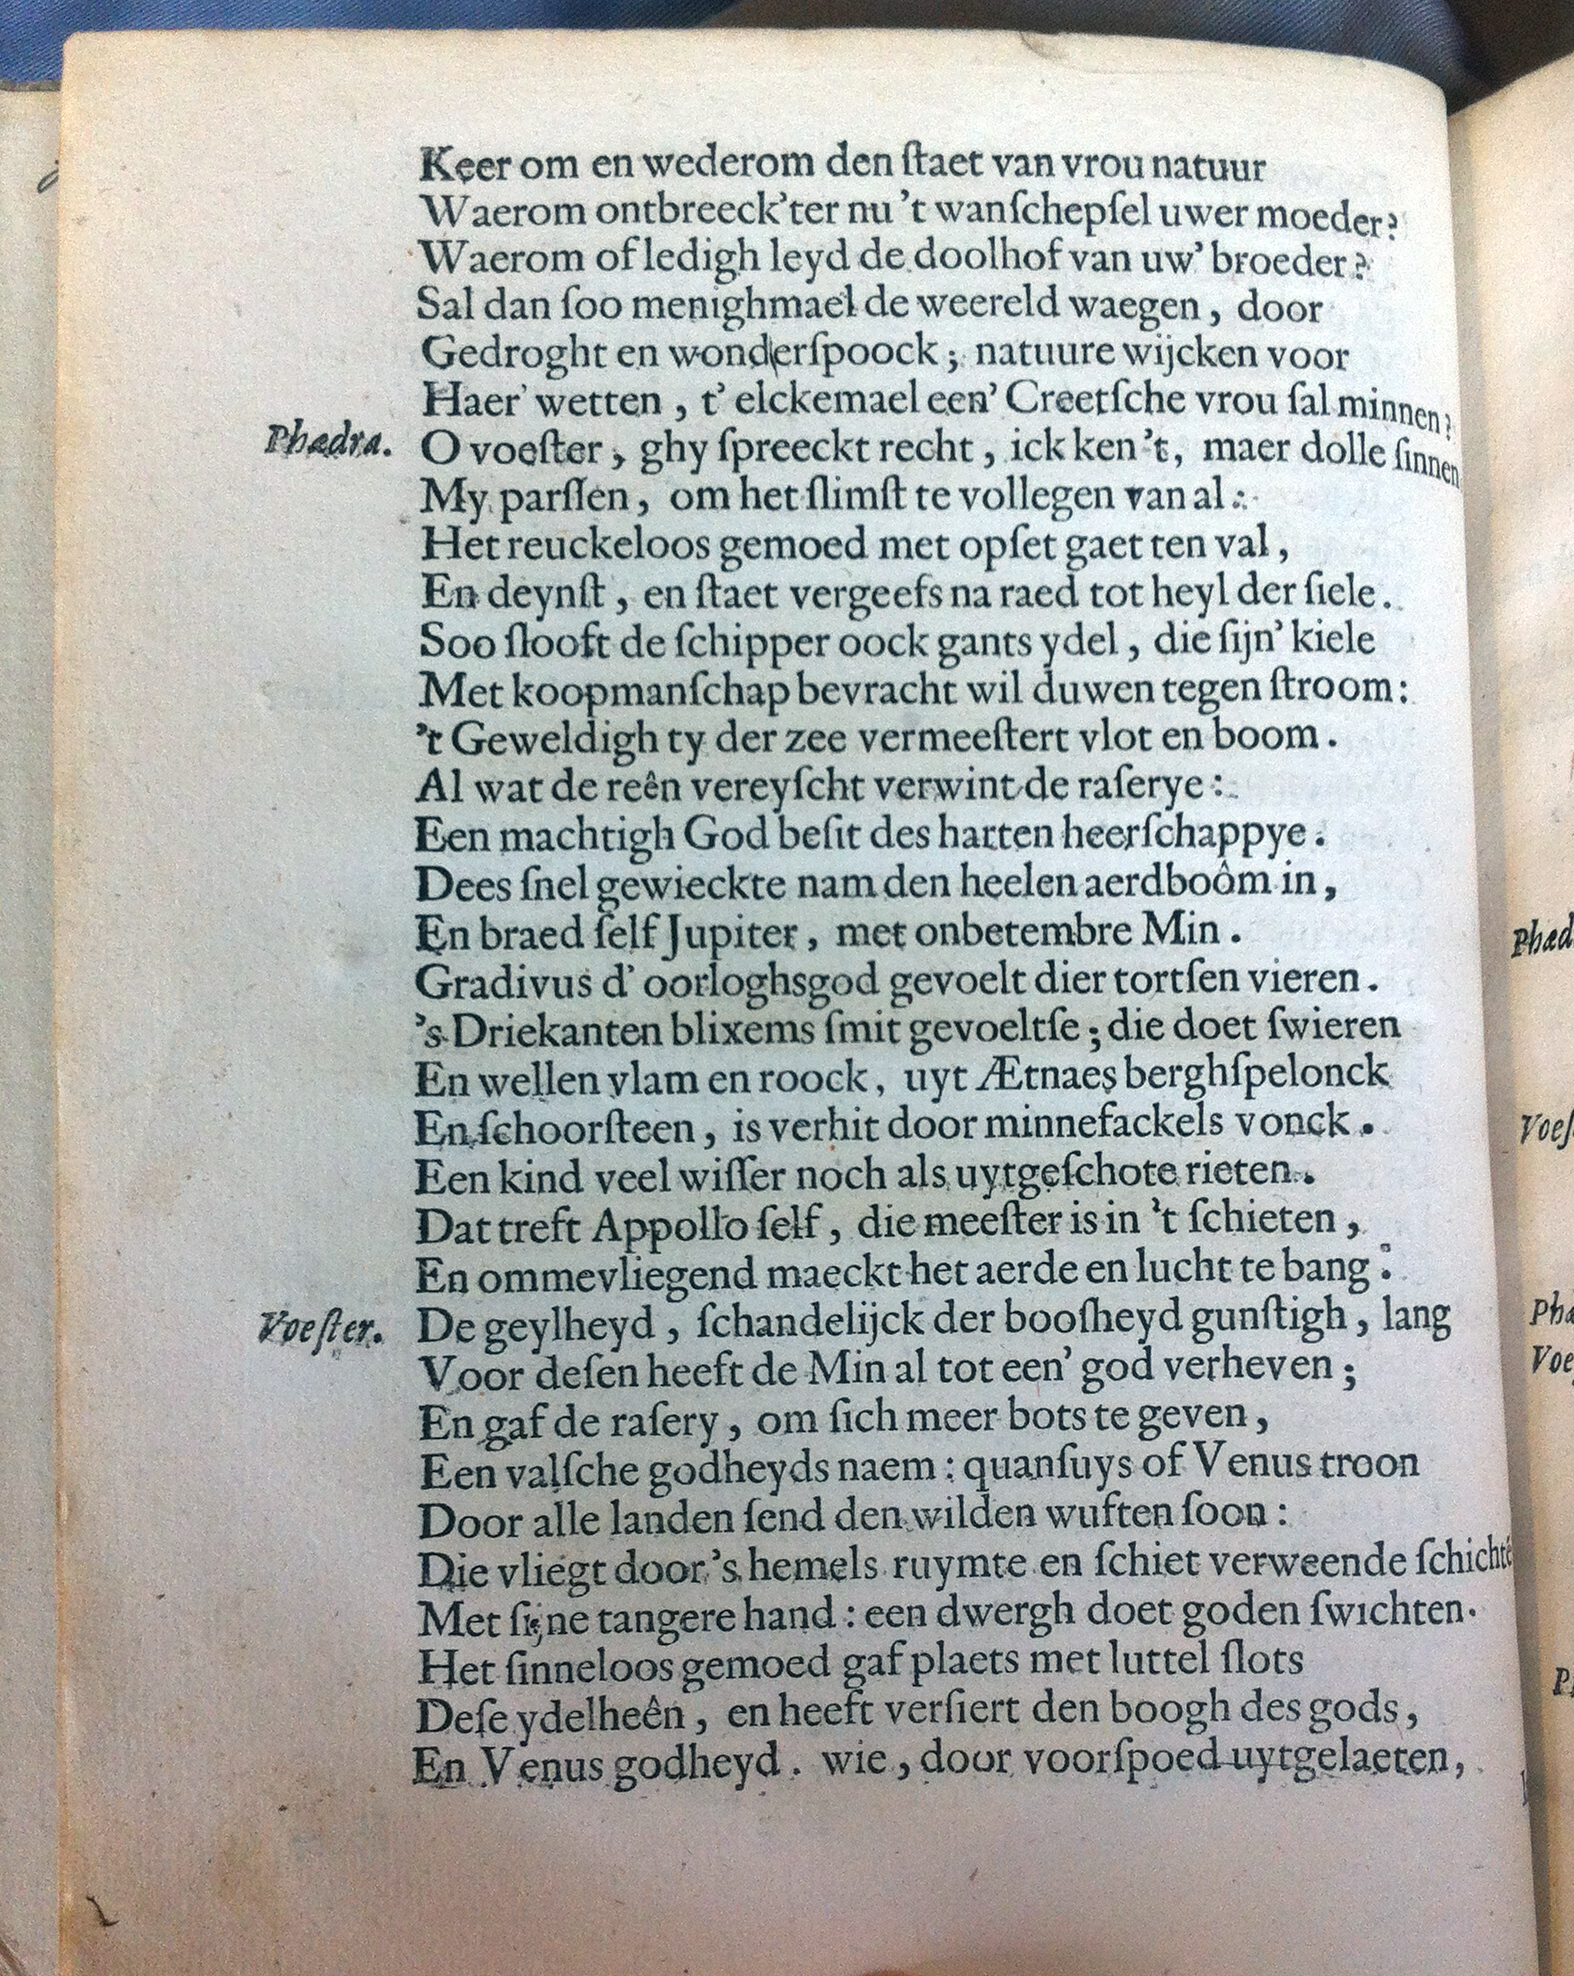 Keer om en wederom den ſtaet van vrou natuur
Waerom ontbreeck'ter nu 't wanſchepſel uwer moeder?
Waerom of ledigh leyd de doolhof van uw' broeder?
Sal dan ſoo menighmael de weereld waegen, door
Gedroght en wonderſpoock; natuure wijcken voor
Haer' wetten, t' elckemael een' Creetſche vrou ſal minnen?
Phædra. O voeſter, ghy ſpreeckt recht, ick ken 't, maer dolle ſinnen
My parſſen, om het ſlimſt te vollegen van al:
Het reuckeloos gemoed met opſet gaet ten val,
En deynſt, en ſtaet vergeefs na raed tot heyl der ſiele.
Soo ſlooft de ſchipper oock gants ydel, die ſijn' kiele
Met koopmanſchap bevracht wil duwen tegen ſtroom:
't Geweldigh ty der zee vermeeſtert vlot en boom.
Al wat de reên vereyſcht verwint de raſerye:
Een machtigh God beſit des harten heerſchappye.
Dees ſnel gewieckte nam den heelen aerdboôm in,
En braed ſelf Jupiter, met onbetembre Min.
Gradivus d' oorloghsgod gevoelt dier tortſen vieren.
's Driekanten blixems ſmit gevoeltſe; die doet ſwieren
En wellen vlam en roock, uyt Ætnaes berghſpelonck
En ſchoorſteen, is verhit door minnefackels vonck.
Een kind veel wiſſer noch als uytgeſchote rieten.
Dat treft Appollo ſelf, die meeſter is in 't ſchieten,
En ommevliegend maeckt het aerde en lucht te bang:
Voeſter. De geylheyd, ſchandelijck der boosheyd gunſtigh, lang
Voor deſen heeft de Min al tot een' god verheven;
En gaf de raſery, om ſich meer bots te geven,
Een valſche godheyds naem: quanſuys of Venus troon
Door alle landen ſend den wilden wuften ſoon:
Die vliegt door 's hemels ruymte en ſchiet verweende ſchichtē
Met ſijne tangere hand: een dwergh doet goden ſwichten.
Het ſinneloos gemoed gaf plaets met luttel ſlots
Deſe ydelheên, en heeft verſiert den boogh des gods,
En Venus godheyd. wie, door voorſpoed uytgelaeten,
Phæd
Voeſ
Phæ
Voe